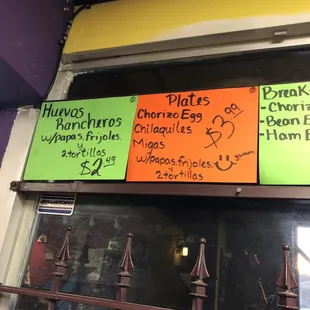 Huevos
Rancheros
w/papas, frijoles
y
2 tortillas
$2.49
Plates
Chorizo Egg
Chilaquiles
Migas
w/papas, frijoles
y
2 tortillas
$3.99
yumm
Break
- Choriz
- Bean E
- Ham E